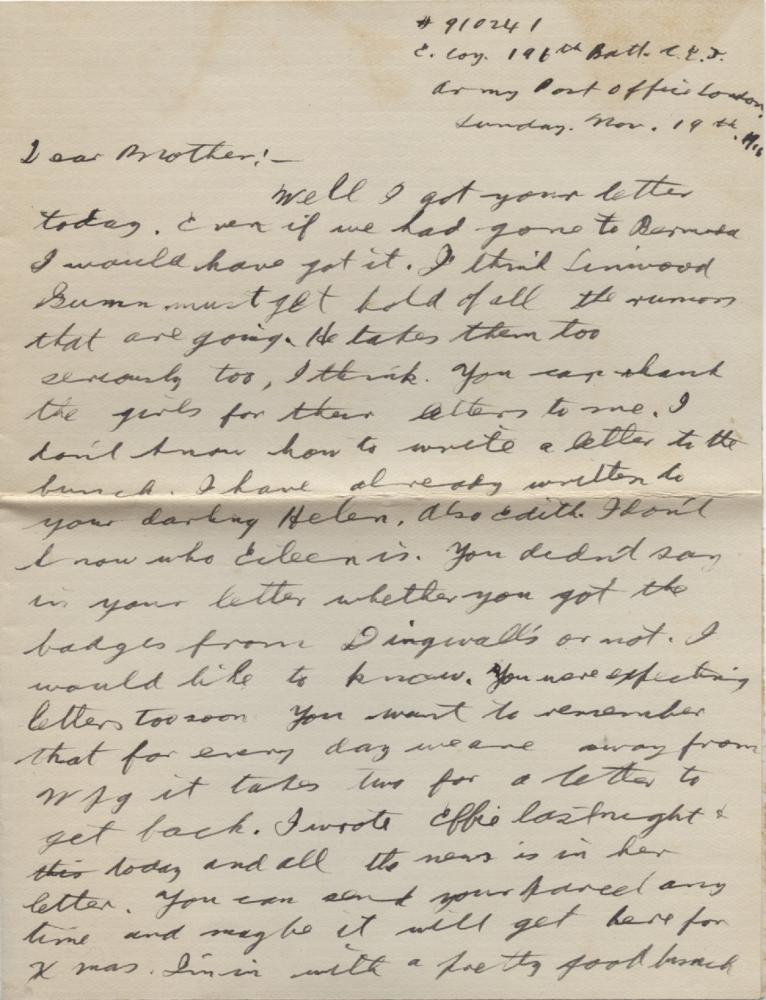 # 910241
E. Coy. 196th Batt. C.E.F.
Army Post Office London,
Sunday. Nov. 19th. 1916
Dear Brother:—
Well I got your letter
today. Even if we had gone to Bermuda
I would have got it. I think Linwood
Gumn must get hold of all the rumors
that are going. He takes them too
seriously too, I think. You can thank
the girls for their letters to me. I
don't know how to write a letter to the
bunch. I have already written to
your darling Helen, Also Edith. I don't
know who Eileen is. You didn't say
in your letter whether you got the
badges from Dingwall's or not. I
would like to know. You were expecting
letters too soon You want to remember
that for every day we are away from
Wpg it takes two for a letter to
get back. I wrote Effie last night &
this today and all the news is in her
letter. You can send your parcel any
time and maybe it will get here for
X mas. I'm in with a pretty good bunch